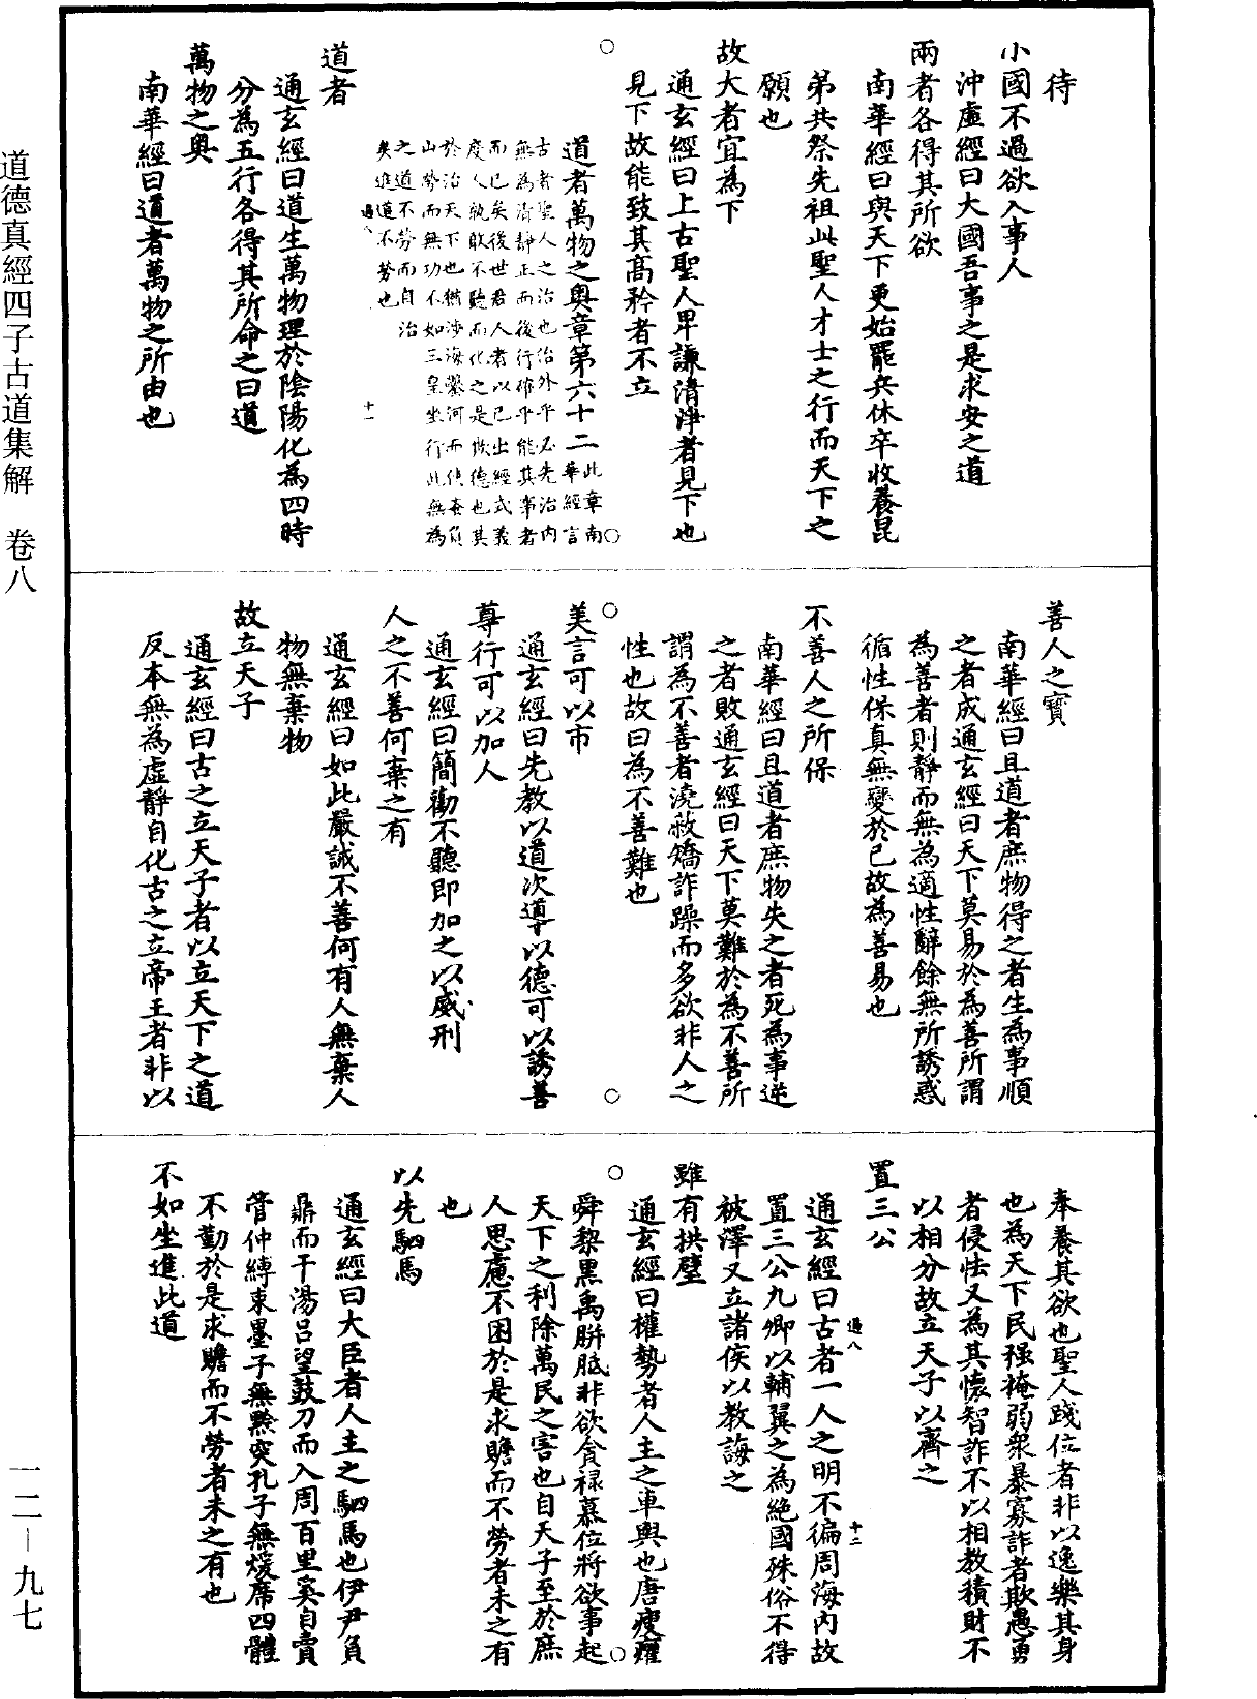 待
小國不過欲入事人
沖虛經曰大國吾事之是求安之道
兩者各得其所欲
南華經曰與天下更始罷兵休卒收養昆
弟共祭先祖此聖人才士之行而天下之
願也
故大者宜為下
通玄經曰上古聖人卑謙清淨者見下也
見下故能致其高矜者不立
道者萬物之奧章第六十二
此章南
華經言
古者聖人之治也治外乎必先治內
無為清靜正而後行確乎能其事者
而已矣後世君人者以已出經式義
度人孰敢不聽而化之是欺德也其
於治天下也猶涉海鑿河而使蚉負
山勢而無功不如三皇坐行此無為
之道不勞而自治
矣進道不勞也
過八
十一
道者
通玄經曰道生萬物理於陰陽化為四時
分為五行各得其所命之曰道
萬物之奧
南華經曰道者萬物之所由也
善人之寶
南華經曰且道者庶物得之者生為事順
之者成通玄經曰天下莫易於為善所謂
為善者則靜而無為適性辭餘無所誘惑
循性保真無變於已故為善易也
不善人之所保
南華經曰且道者庶物失之者死為事逆
之者敗通玄經曰天下莫難於為不善所
謂為不善者澆蔽矯詐躁而多欲非人之
性也故曰為不善難也
美言可以市
通玄經曰先教以道次導以德可以誘善
尊行可以加人
通玄經曰簡勸不聽即加之以威刑
人之不善何棄之有
通玄經曰如此嚴誡不善何有人無棄人
物無棄物
故立天子
通玄經曰古之立天子者以立天下之道
反本無為虛靜自化古之立帝王者非以
奉養其欲也聖人踐位者非以逸樂其身
也為天下民强掩弱衆暴寡詐者欺愚勇
者侵怯又為其懷智詐不以相教積財不
以相分故立天子以齊之
置三公
過八
十二
通玄經曰古者一人之明不徧周海內故
置三公九卿以輔翼之為絶國殊俗不得
被澤又立諸侯以教誨之
雖有拱璧
通玄經曰權勢者人主之車輿也唐瘦癯
舜黎黑禹胼胝非欲貪禄慕位將欲事起
天下之利除萬民之害也自天子至於庶
人思慮不困於是求贍而不勞者未之有
也
以先駟馬
通玄經曰大臣者人主之駟馬也伊尹負
鼎而干湯呂望鼓刀而入周百里奚自賣
管仲縛束墨子無黔突孔子無煖席四體
不勤於是求贍而不勞者未之有也
不如坐進此道
道德真經四子古道集解 卷八
一二－九七